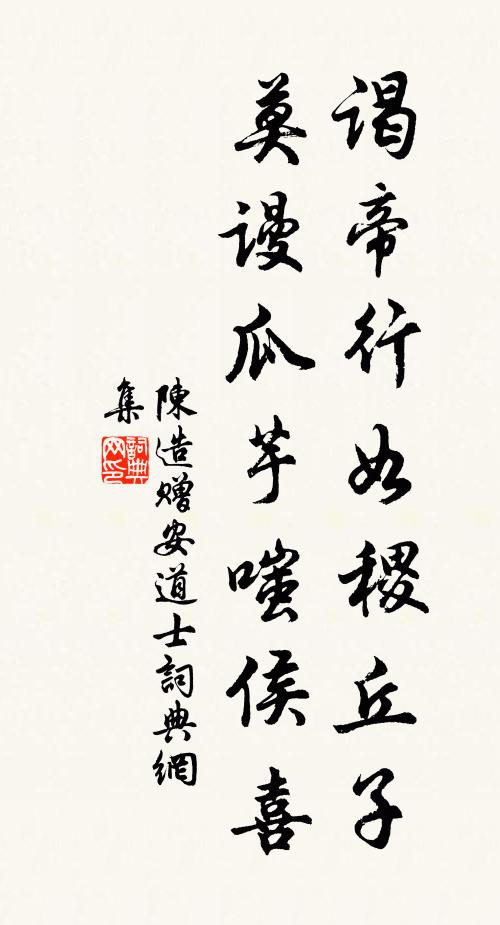 謁帝行如稷丘子
莫謾瓜芋嗤侯喜
陳造贈安道士詞典網
集
詞典
网印